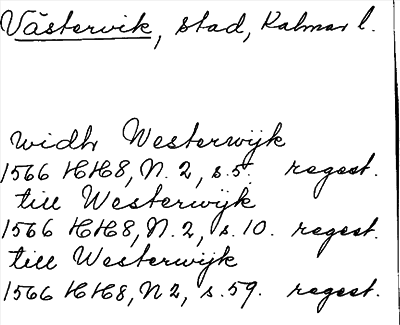 Västervik, stad, Kalmar l.
widh Westerwijk
1566 HH8, N. 2, s. 5. regest.
till Westerwijk
1566 HH8, N. 2, s. 10. regest.
till Westerwijk
1566 HH8, N 2, s. 59. regest.